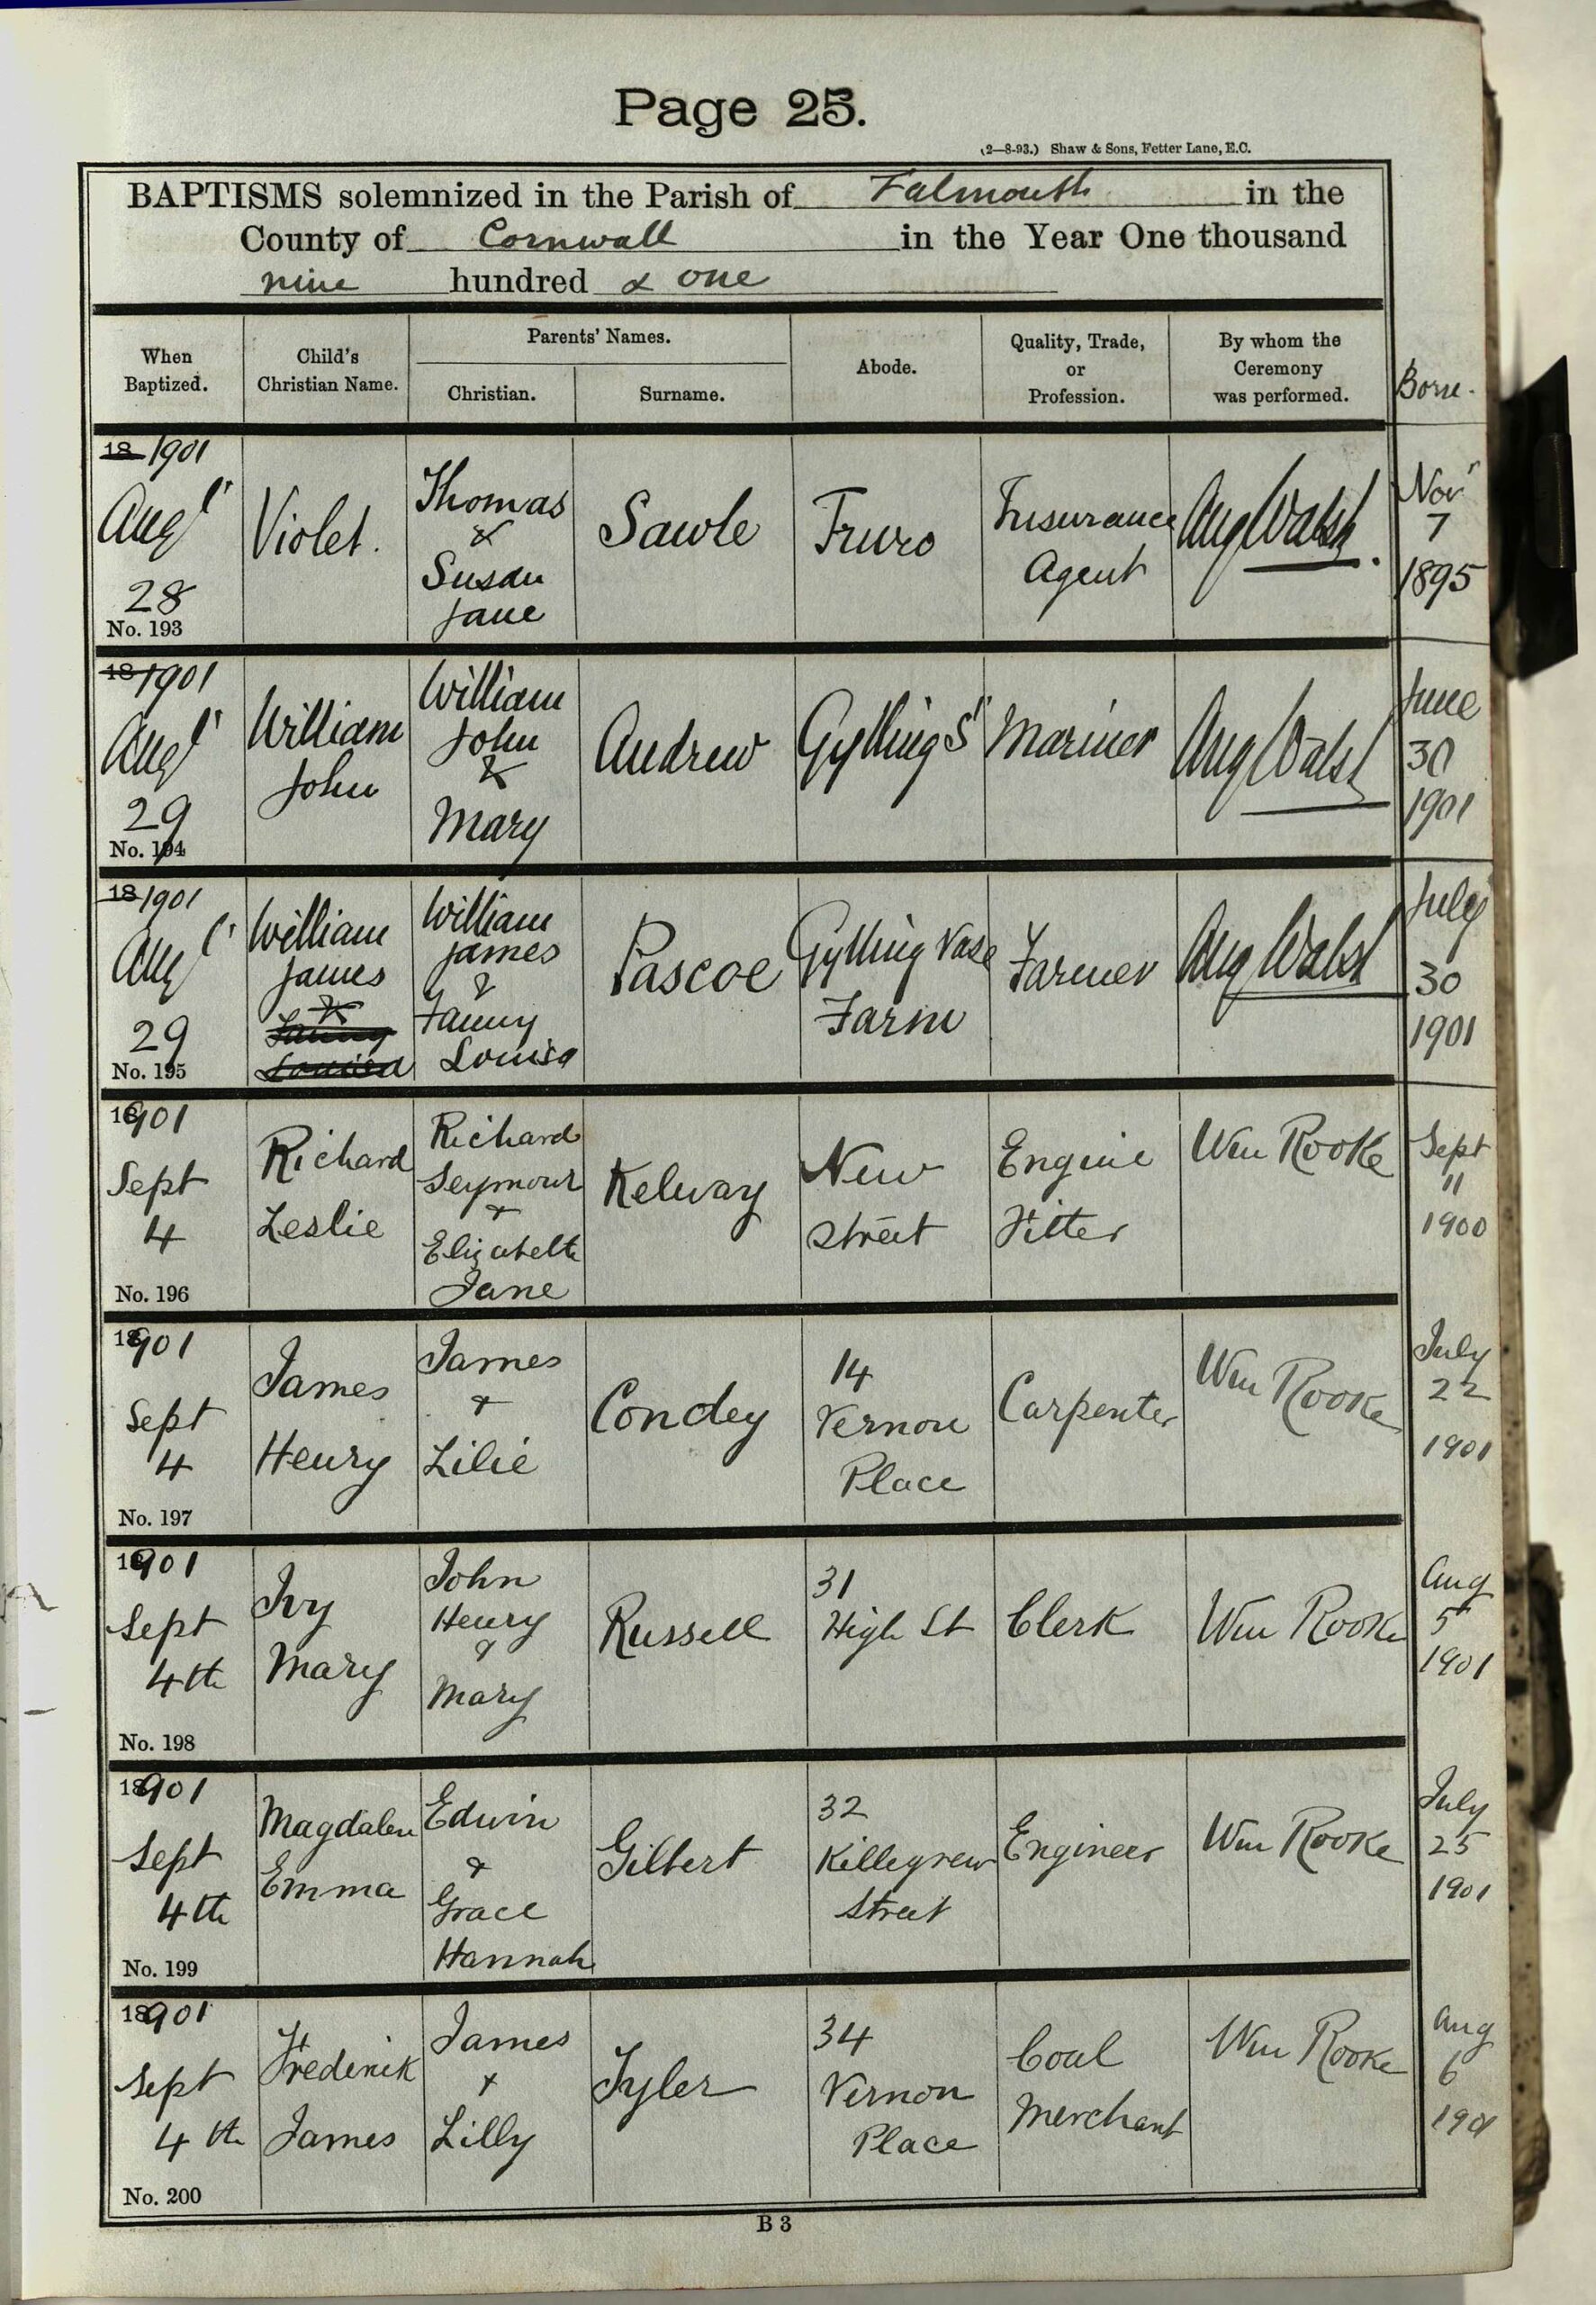 Page 25.
(2—8-93.) Shaw & Sons, Fetter Lane, E.C.
BAPTISMS solemnized in the Parish of Falmouth in the
County of Cornwall in the Year One thousand
nine hundred & one
When Baptized.
Child's Christian Name.
Parents' Names.
Christian.
Surname.
Abode.
Quality, Trade, or Profession.
By whom the Ceremony was performed.
Born.
18 1901
Augt
28
No. 193
Violet.
Thomas
&
Susan
Jane
Sawle
Truro
Insurance
Agent
Aug Walsh.
Novr
7
1895
18 1901
Augt
29
No. 194
William
John
William
John
&
Mary
Andrew
Gylling St
Mariner
Aug Walsh
June
30
1901
18 1901
Augt
29
No. 195
William
James
&
Fanny
Louisa
William
James
&
Fanny
Louisa
Pascoe
Gylling Vase
Farm
Farmer
Aug Walsh
July
30
1901
1901
Sept
4
No. 196
Richard
Leslie
Richard
Seymour
+
Elizabeth
Jane
Kelway
New
Street
Engine
Fitter
Wm Rooke
Sept
11
1900
1901
Sept
4
No. 197
James
Henry
James
+
Lilie
Condey
14
Vernon
Place
Carpenter
Wm Rooke
July
22
1901
1901
Sept
4th
No. 198
Ivy
Mary
John
Henry
&
Mary
Russell
31
High St
Clerk
Wm Rooke
Aug
5
1901
1901
Sept
4th
No. 199
Magdalen
Emma
Edwin
+
Grace
Hannah
Gilbert
32
Killegrew
Street
Engineer
Wm Rooke
July
25
1901
1901
Sept
4th
No. 200
Frederick
James
James
+
Lilly
Tyler
34
Vernon
Place
Coal
Merchant
Wm Rooke
Aug
6
1901
B 3